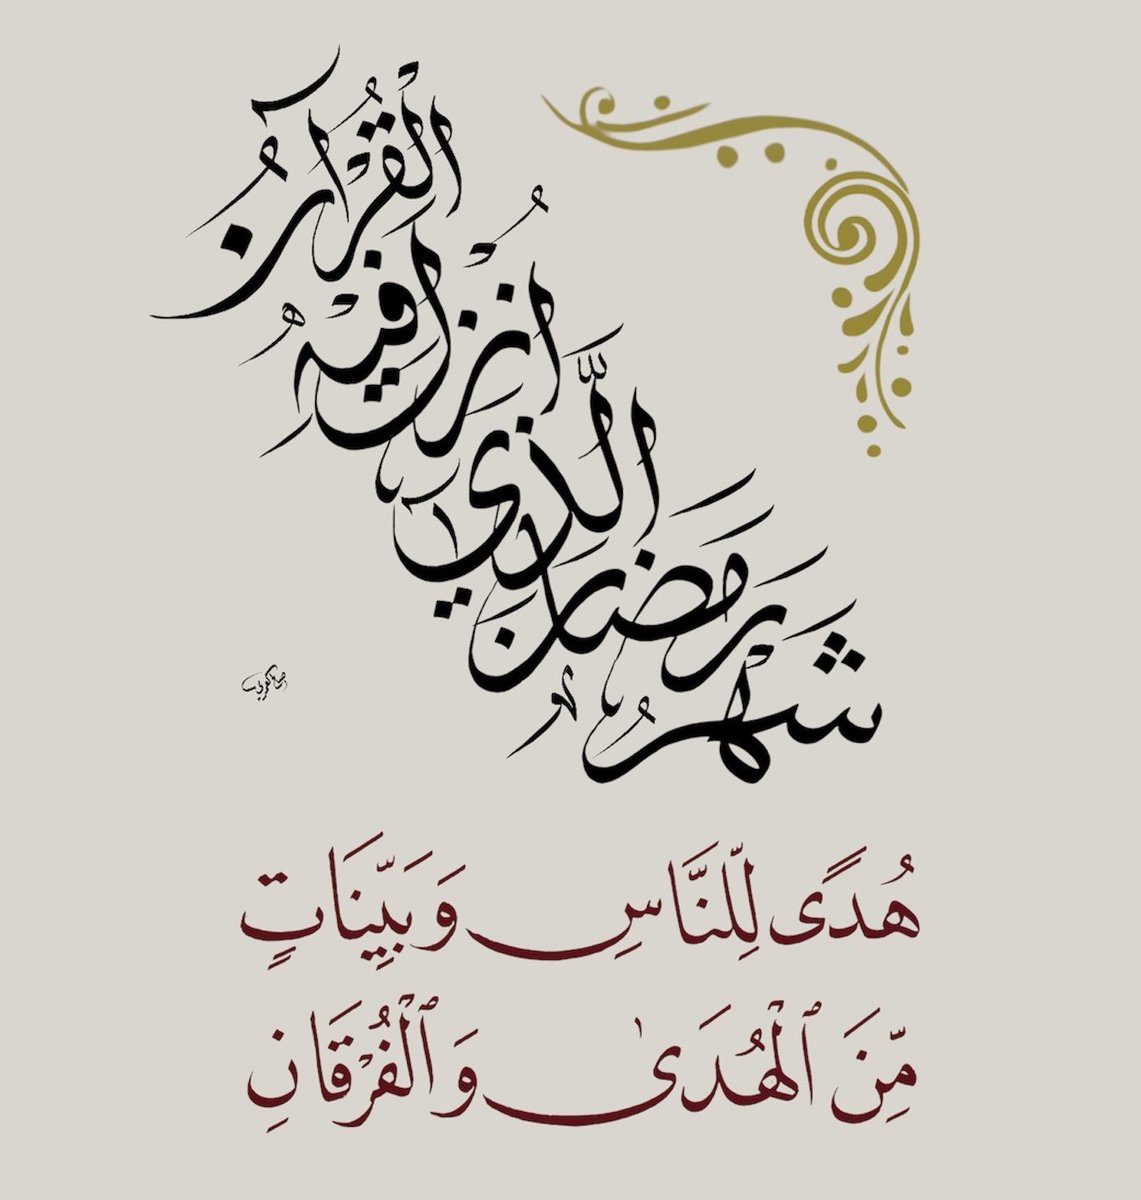 شَهْرُ رَمَضَانَ الَّذِي أُنْزِلَ فِيهِ الْقُرْآنُ
هُدًى لِّلنَّاسِ وَبَيِّنَاتٍ
مِّنَ ٱلْهُدَىٰ وَٱلْفُرْقَانِ